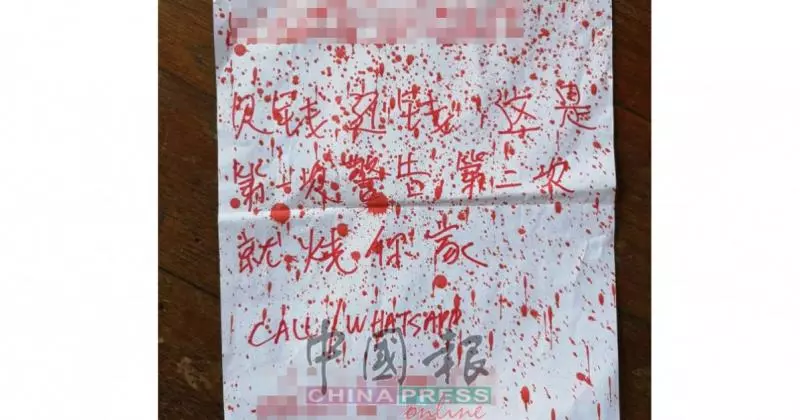 欠钱还钱，这是
第一次警告，第二次
就烧你家
CALL/WHATSAPP
中國報
CHINA PRESS
online